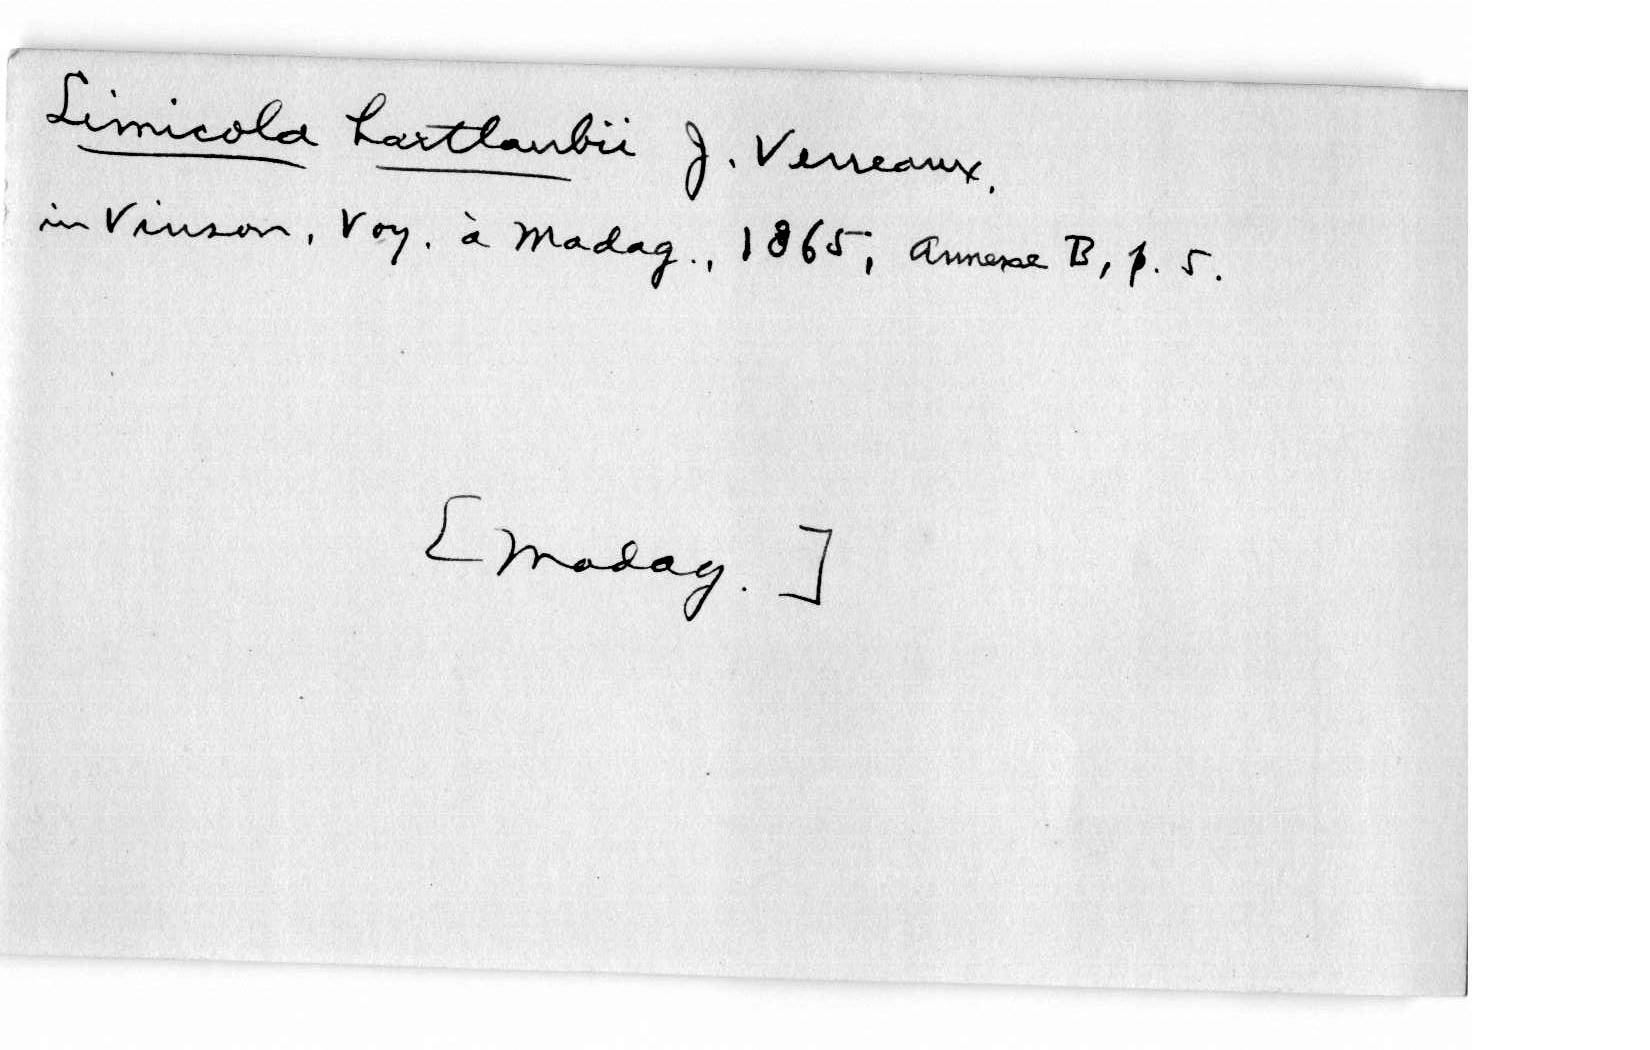 Limicola hartlaubii J. Verreaux.
in Vinson, Voy. à Madag., 1865, Annexe B, p. 5.
[Madag.]